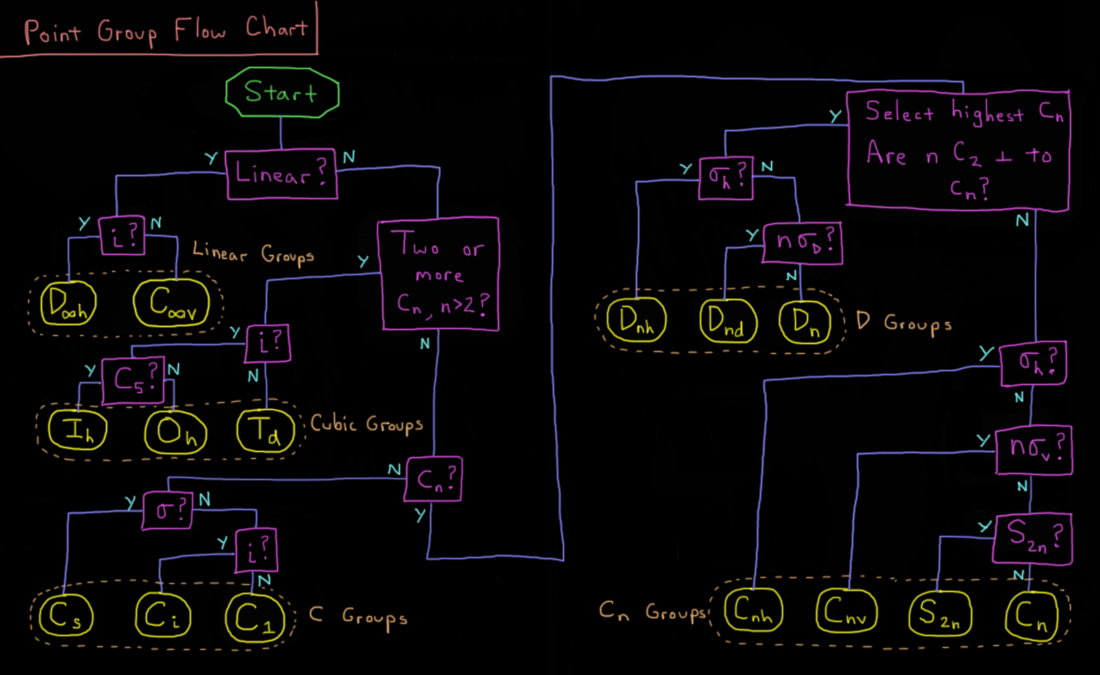 Point Group Flow Chart
Start
Y
N
Linear?
Y
N
i?
Linear Groups
D∞h
C∞v
Two or
more
Cn, n>2?
Y
N
i?
Y
N
C5?
Y
N
Ih
Oh
Td
Cubic Groups
Cn?
N
Y
σ?
Y
N
i?
Y
N
Cs
Ci
C1
C Groups
Select highest Cn
Are n C2 ⊥ to
Cn?
Y
N
σh?
Y
N
nσD?
Y
N
Dnh
Dnd
Dn
D Groups
σh?
Y
N
nσv?
Y
N
S2n?
Y
N
Cn Groups
Cnh
Cnv
S2n
Cn